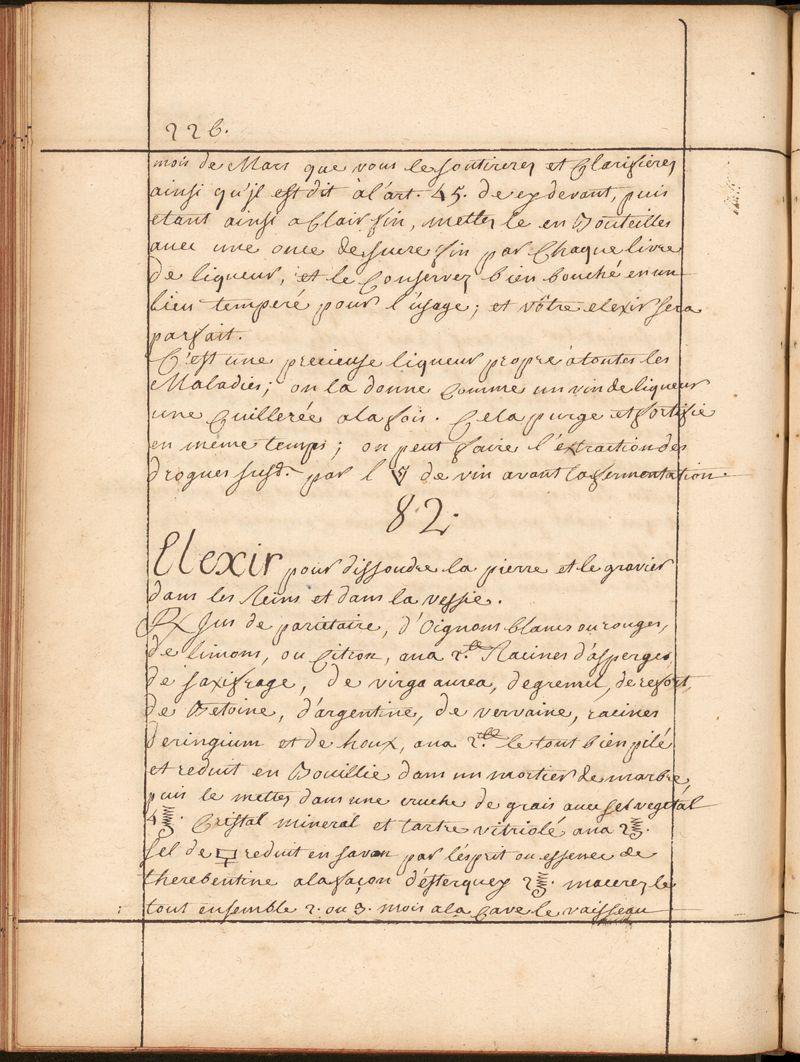 226.
mois de Mars que vous le soutirerez et Clarifierez
ainsi qu'jl est dit à l'art. 45. de cy devant, puis
etant ainsi a Clair fin, mettez le en Bouteilles
avec une once de sucre fin par Chaque livre
de liqueur, et le Conservez bien bouché en un
lieu temperé pour l'úsage; et vôtre elexir sera
parfait.
C'est une precieuse liqueur propre à toutes les
Maladies; on la donne Comme un vin de liqueur
une Cuillerée a la fois. Cela purge et fortifie
en même temps; on peut faire l'extraction des
drogues susd. par l' de vin avant la fermentation
82.
Elexir pour dissoudre la pierre et le gravier
dans les Reins et dans la vessie.
℞ Jus de parietaire, d'Oignons blancs ou rouges,
de limons, ou Citron, ana 2. Racines d'asperges
de saxifrage, de virga aurea, de gremil, de refort,
de Betoine, d'argentine, de vervaine, racines
deringium et de houx, ana 2. le tout bien pilé
et reduit en Bouillie dans un mortier de marbre
puis le mettez dans une cruche de grais avec sel vegetál
4 Cristal mineral et tartre vitriolé ana 2
sel de reduit en savon par lésprit ou essence de
therebentine a la façon d'ésterquey 2 macerez le
tout ensemble 2. ou 3. mois a la Cave le vaisseau